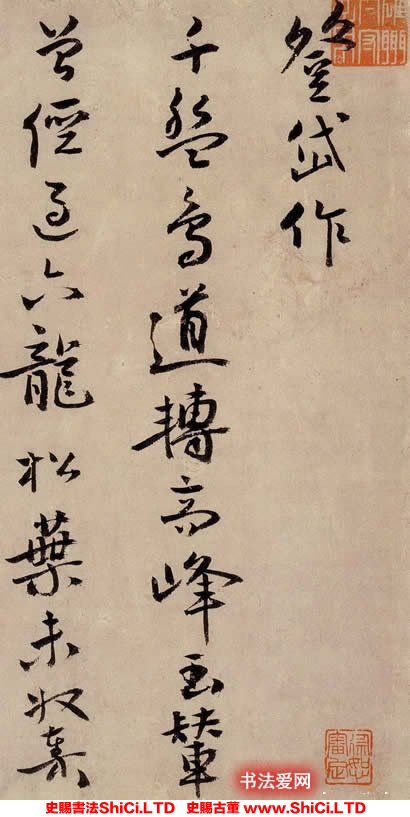 登岱作
千盤鳥道轉高峰玉輦
曾經過六龍松葉未收秦
书法爱网
史賜書法ShiCi.LTD 史賜古董 www.ShiCi.LTD